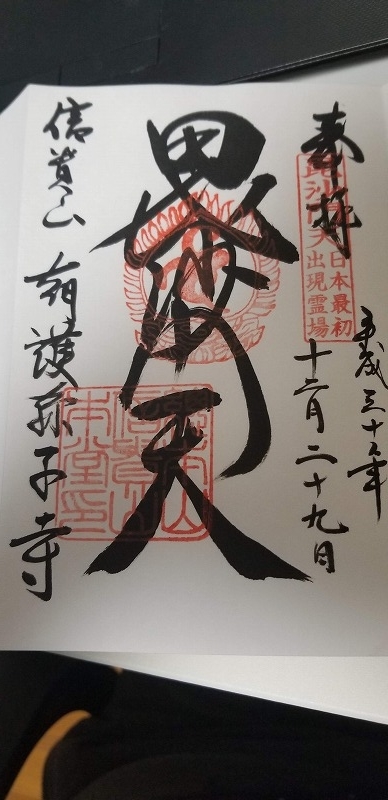 奉拝
毘沙門天
日本最初
出現霊場
平成三十年
十二月二十九日
毘沙門天
信貴山 朝護孫子寺
本堂印